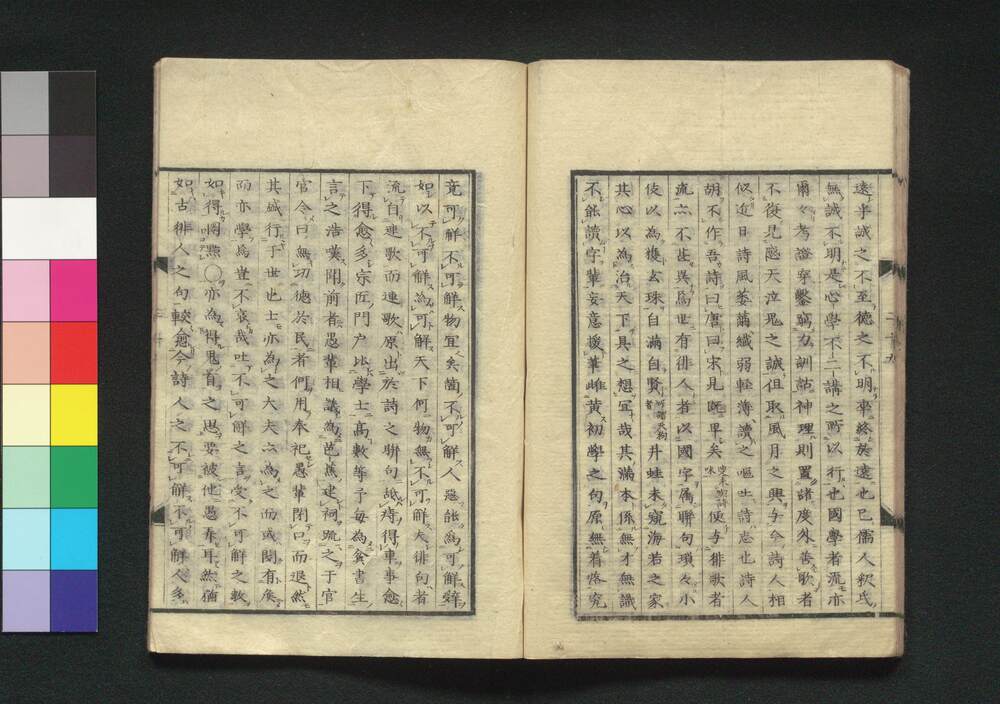 遠乎誠之不至德之不明率終於遠也已儒人釈氏
無誠不明是心學不二講之所以行也國學者流亦
爾々考證穿鑿竊力訓詁神理則置諸度外善歌者
不復見感天泣鬼之誠但取風月之興与今詩人相
似近日詩風萎繭纖弱輕薄讀之嘔吐詩志也詩人
胡不作吾詩曰唐曰宋見既卑矣便与俳歌者
流亦不甚異焉世有俳人者以國字属聯句瑣々小
伎以為探玄珠自滿自賢井蛙未窺海若之家
其心以為治天下具之想宜哉其滿本係無才無識
不能讀字輩妄意援筆雌黄初學之句原無着落究
竟可解不可解物宜矣箇不可解人惡能為可解辞
如以不可解為可解天下何物無不可解夫俳句者
流自連歌而連歌原出於詩之聯句詆痔得車事愈
下得愈多宗匠門户比學士高數等予每為貧書生
言之浩嘆聞前者愚輩相議為芭蕉建祠䟽之于官
官令曰無功德於民者何用奉祀愚輩閉口而退然
其盛行于世也士亦為之大夫亦為之而或聞有侯
而亦學焉豈不哀哉吐不可解之言受不可解之教
如得悶㷊○亦為得鬼首之思要被他愚弄耳然猶
如古俳人之句較愈今詩人之不可解不可解人多